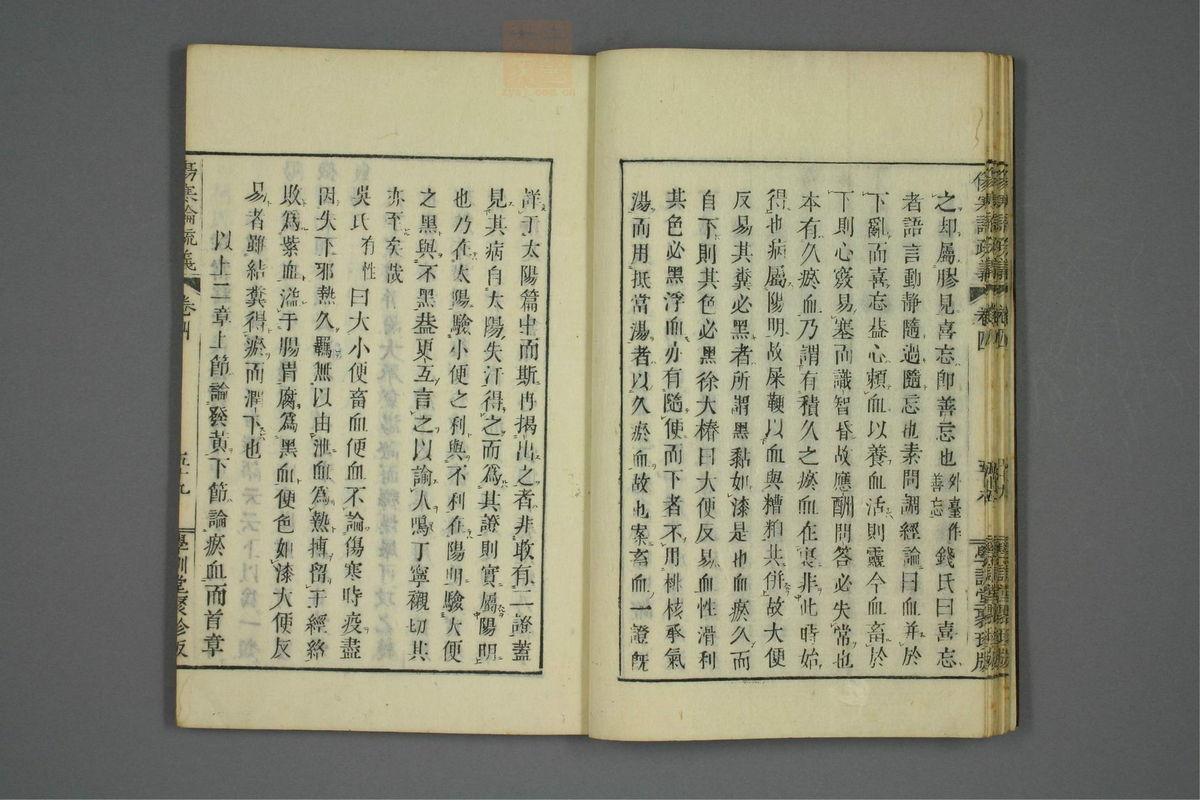 之却屬膠見喜忘卽善忘也外臺作善忘錢氏曰喜忘
者語言動靜隨過隨忘也素問調經論曰血并於
下亂而喜忘蓋心賴血以養血活則靈今血畜於
下則心竅易塞而識智昏故應酬問答必失常也
本有久瘀血乃謂有積久之瘀血在裏非此時始
得也病屬陽明故屎鞕以血與糟粕共併故大便
反易其糞必黑者所謂黑黏如漆是也血瘀久而
自下則其色必黑徐大椿曰大便反易血性滑利
其色必黑浮血亦有隨便而下者不用桃核承氣
湯而用抵當湯者以久瘀血故也案畜血一證旣
詳于太陽篇中而斯冉揭出之者非敢有二證蓋
見其病自太陽失汗得之而爲其證則實屬陽明
也乃在太陽驗小便之利與不利在陽明驗大便
之黑與不黑蓋更互言之以諭人嗚丁寧襯切其
亦至矣哉
吳氏有性曰大小便畜血便血不論傷寒時疫盡
因失下邪熱久羈無以由泄血爲熱搏留于經絡
敗爲紫血溢于腸胃腐爲黑血便色如漆大便反
易者雖結糞得瘀而潤下也
以上二章上節論發黃下節論瘀血而首章
傷寒論疏義
卷四
五十九
學訓堂聚珍版